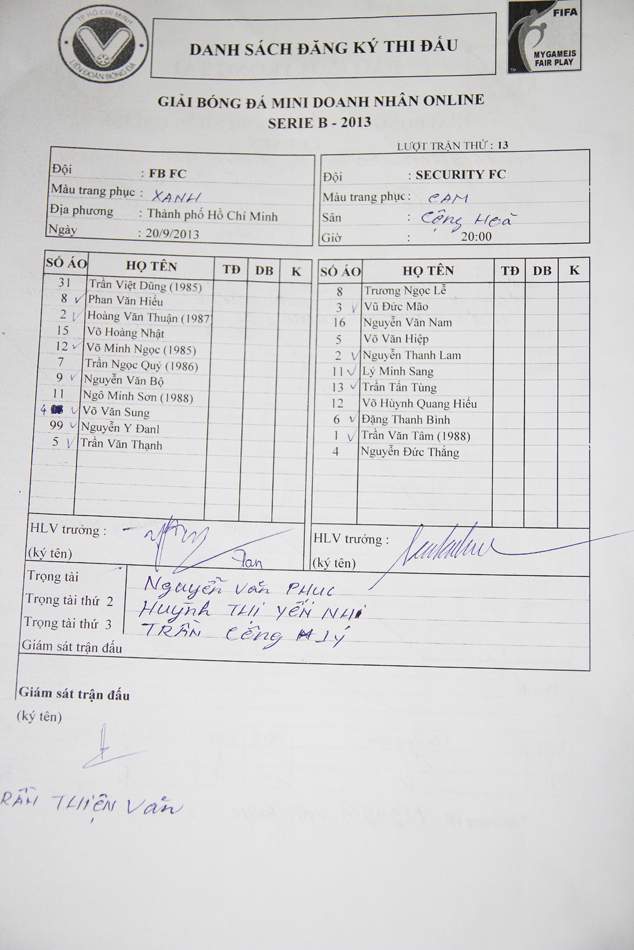 TP HỒ CHÍ MINH
LIÊN ĐOÀN BÓNG ĐÁ
DANH SÁCH ĐĂNG KÝ THI ĐẤU
FIFA
MYGAMEIS
FAIR PLAY
GIẢI BÓNG ĐÁ MINI DOANH NHÂN ONLINE
SERIE B - 2013
LƯỢT TRẬN THỨ : 13
Đội : FB FC
Màu trang phục : XANH
Địa phương : Thành phố Hồ Chí Minh
Ngày : 20/9/2013
Đội : SECURITY FC
Màu trang phục : CAM
Sân : CộNG HOÀ
Giờ : 20:00
SỐ ÁO HỌ TÊN TĐ DB K
31 Trần Việt Dũng (1985)
8 ✓ Phan Văn Hiếu
2 ✓ Hoàng Văn Thuận (1987
15 Võ Hoàng Nhật
12 ✓ Võ Minh Ngọc (1985)
7 Trần Ngọc Quý (1986)
9 ✓ Nguyễn Văn Bộ
11 Ngô Minh Sơn (1988)
4 ✓ Võ Văn Sung
99 ✓ Nguyễn Y Đanl
5 ✓ Trần Văn Thạnh
SỐ ÁO HỌ TÊN TĐ DB K
8 Trương Ngọc Lễ
3 ✓ Vũ Đức Mão
16 Nguyễn Văn Nam
5 Võ Văn Hiệp
2 ✓ Nguyễn Thanh Lam
11 ✓ Lý Minh Sang
13 ✓ Trần Tấn Tùng
12 Võ Huỳnh Quang Hiếu
6 ✓ Đặng Thanh Bình
1 ✓ Trần Văn Tâm (1988)
4 Nguyễn Đức Thắng
HLV trưởng :
(ký tên)
HLV trưởng :
(ký tên)
Trọng tài NGUYỄN VĂN PHUC
Trọng tài thứ 2 HUỲNH THỊ YẾN NHI
Trọng tài thứ 3 TRẦN CÔNG
Giám sát trận đấu
Giám sát trận đấu
(ký tên)
RẦN THIỆN VĂN